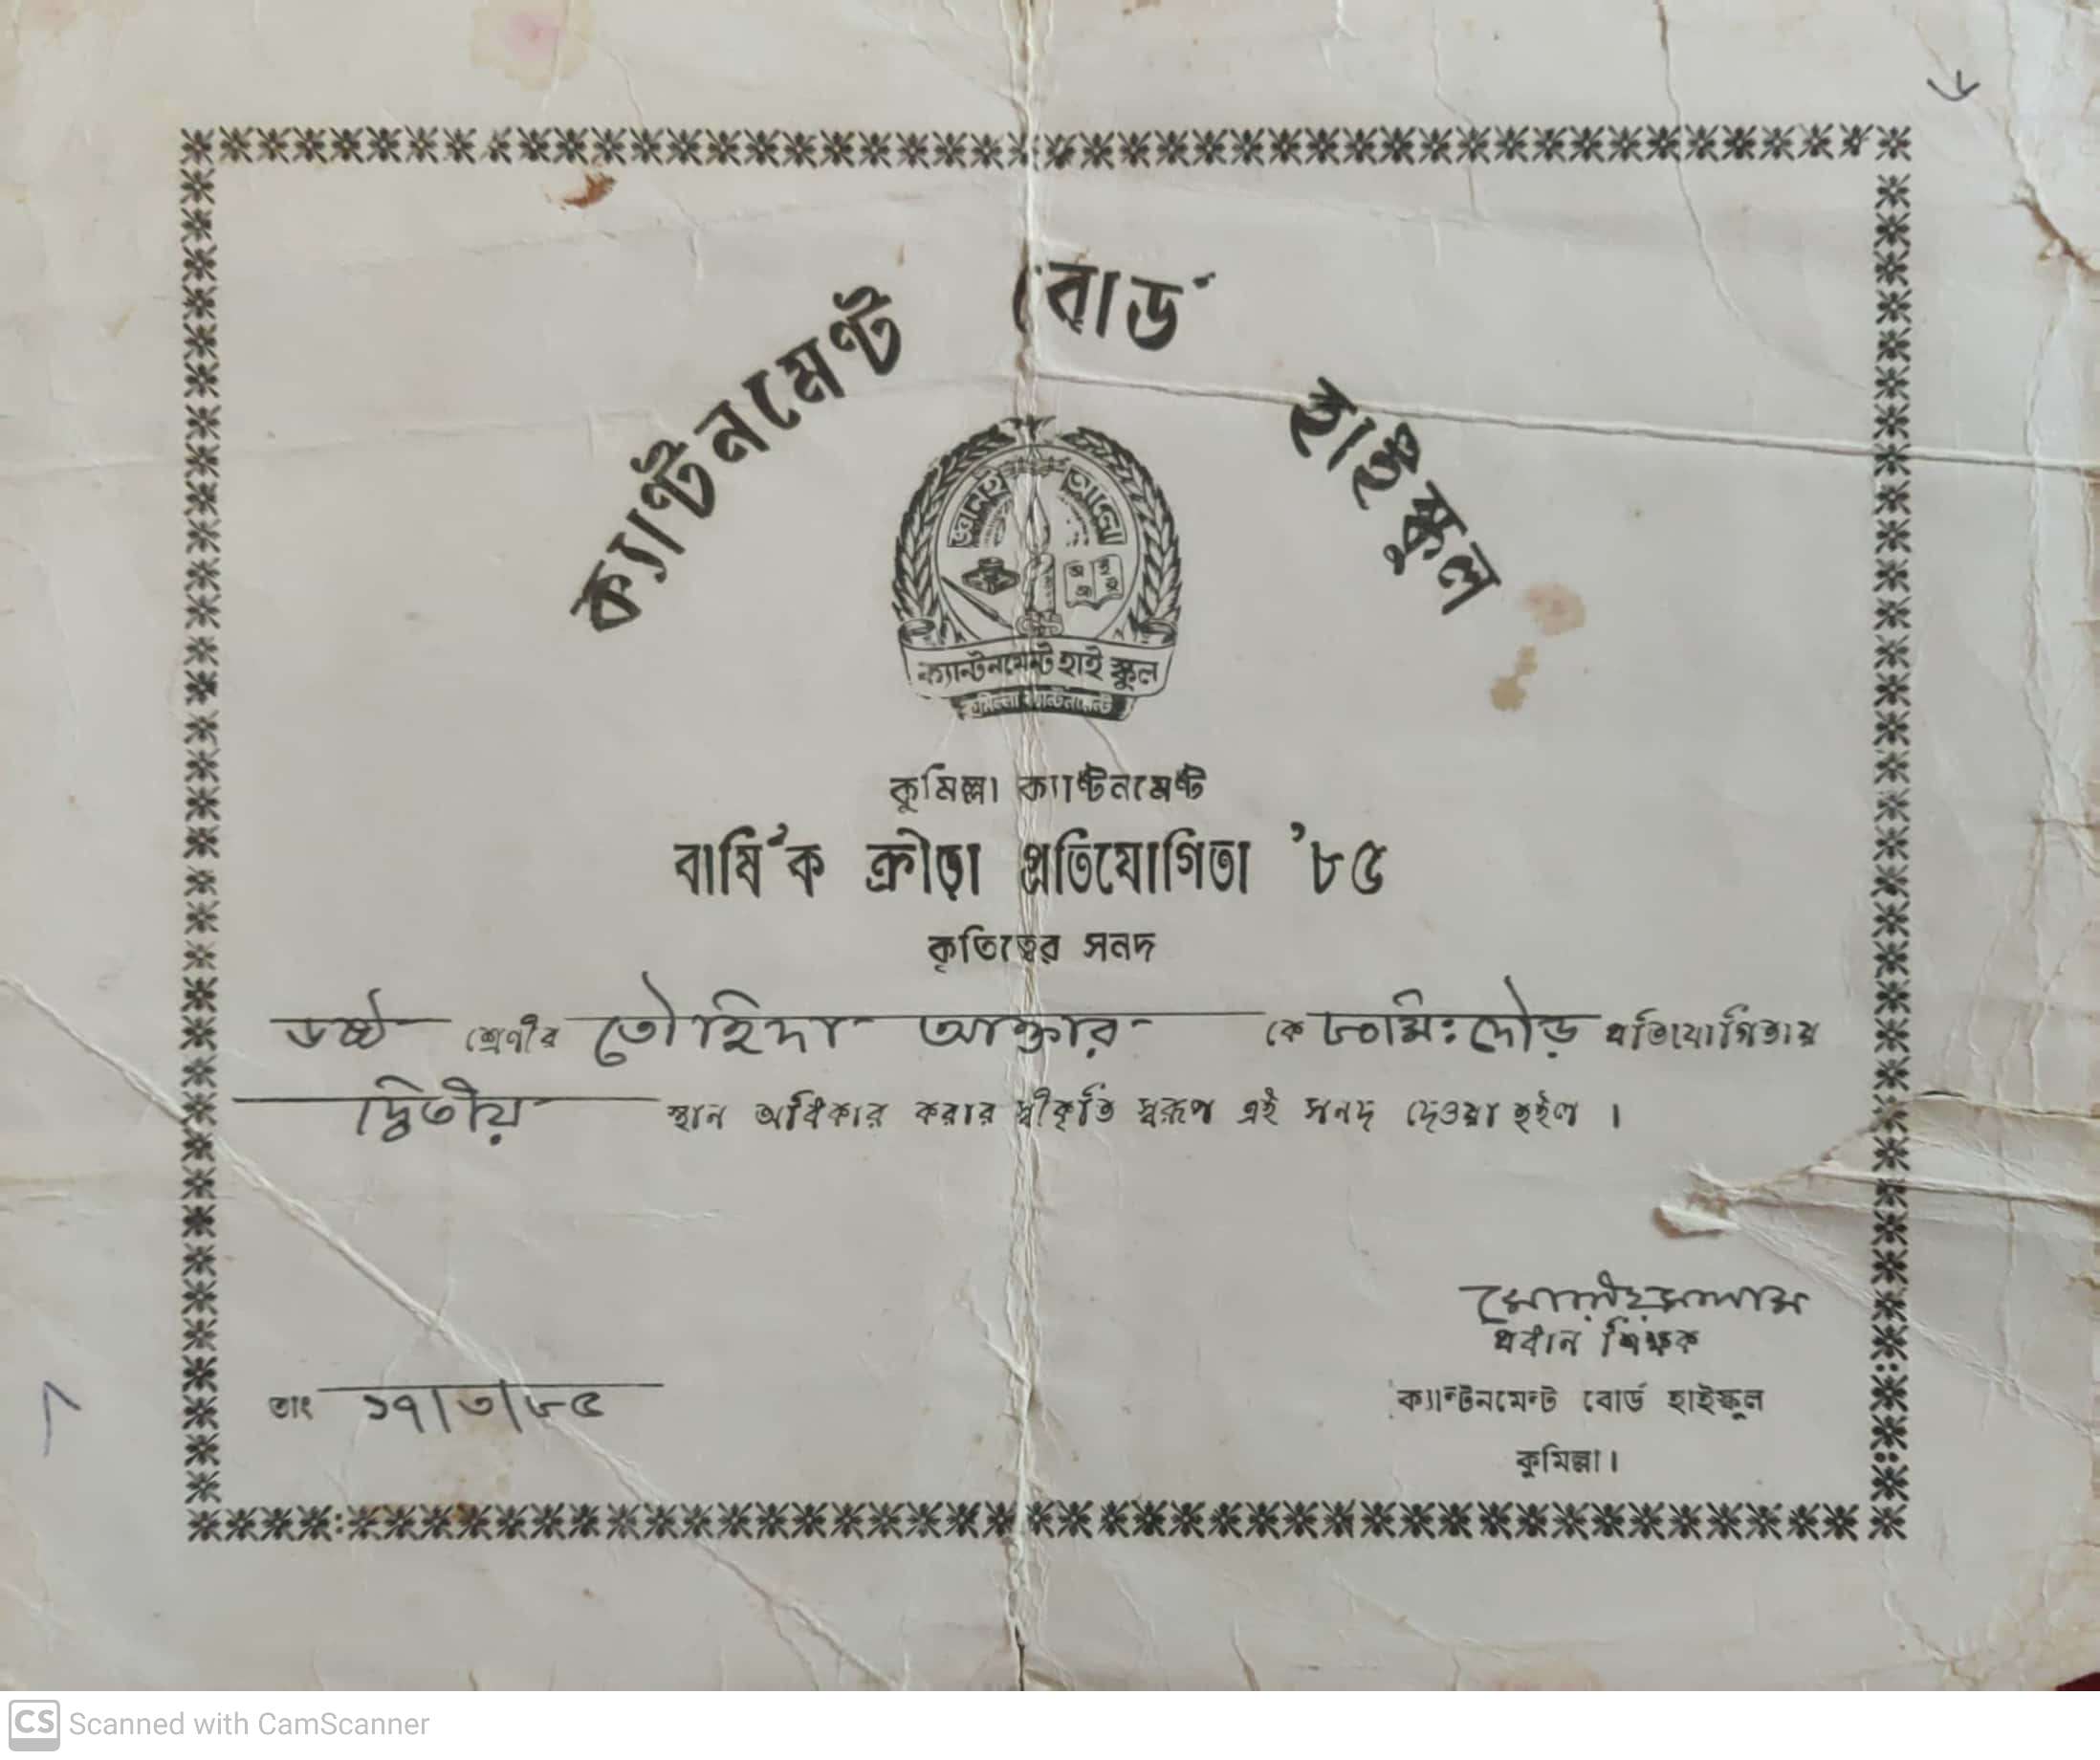 ক্যাণ্টনমেণ্ট বোর্ড হাইস্কুল
জ্ঞানই আলো
অ আ ই
ক্যান্টনমেন্ট হাই স্কুল
কুমিল্লা ক্যান্টনমেন্ট
কুমিল্লা ক্যাণ্টনমেণ্ট
বার্ষিক ক্রীড়া প্রতিযোগিতা '৮৫
কৃতিত্বের সনদ
৬ষ্ঠ শ্রেণীর তৌহিদা আক্তার কে মি: দৌড় প্রতিযোগিতায়
দ্বিতীয় স্থান অধিকার করার স্বীকৃতি স্বরূপ এই সনদ দেওয়া হইল ।
প্রধান শিক্ষক
তাং ১৭/৩/৮৫
ক্যান্টনমেন্ট বোর্ড হাইস্কুল
কুমিল্লা।
CS Scanned with CamScanner